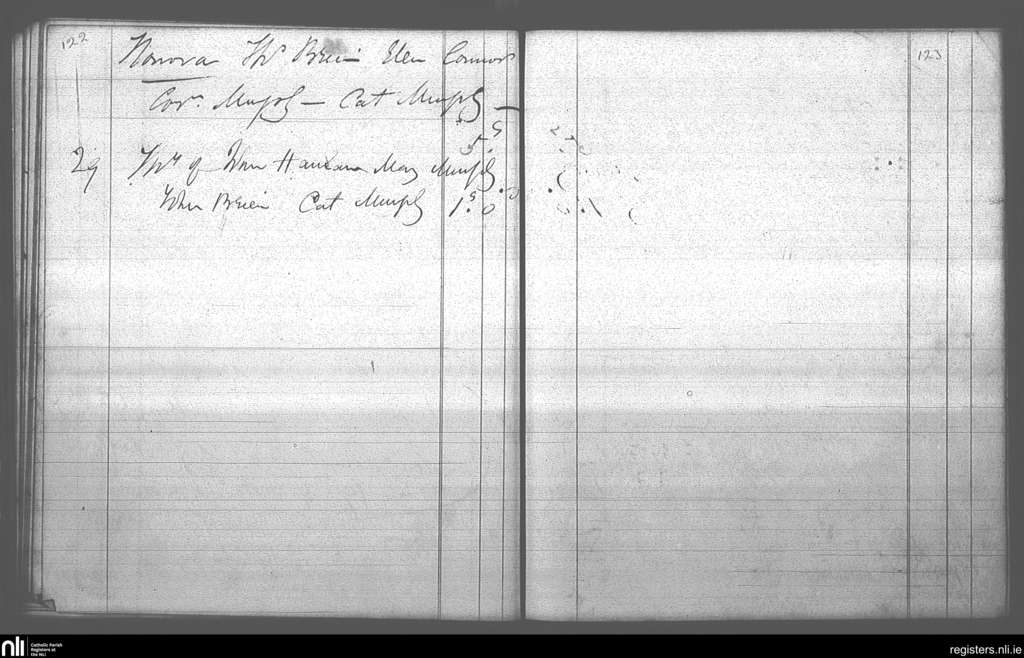 122
Honora Ths Brien Ellen Connor
Corn. Murphy — Cat Murphy —
5 5
29 Ths of Wm Mary Murphy
John Brien Cat Murphy 1 5 0
123
nli Catholic Parish Registers at the NLI
registers.nli.ie